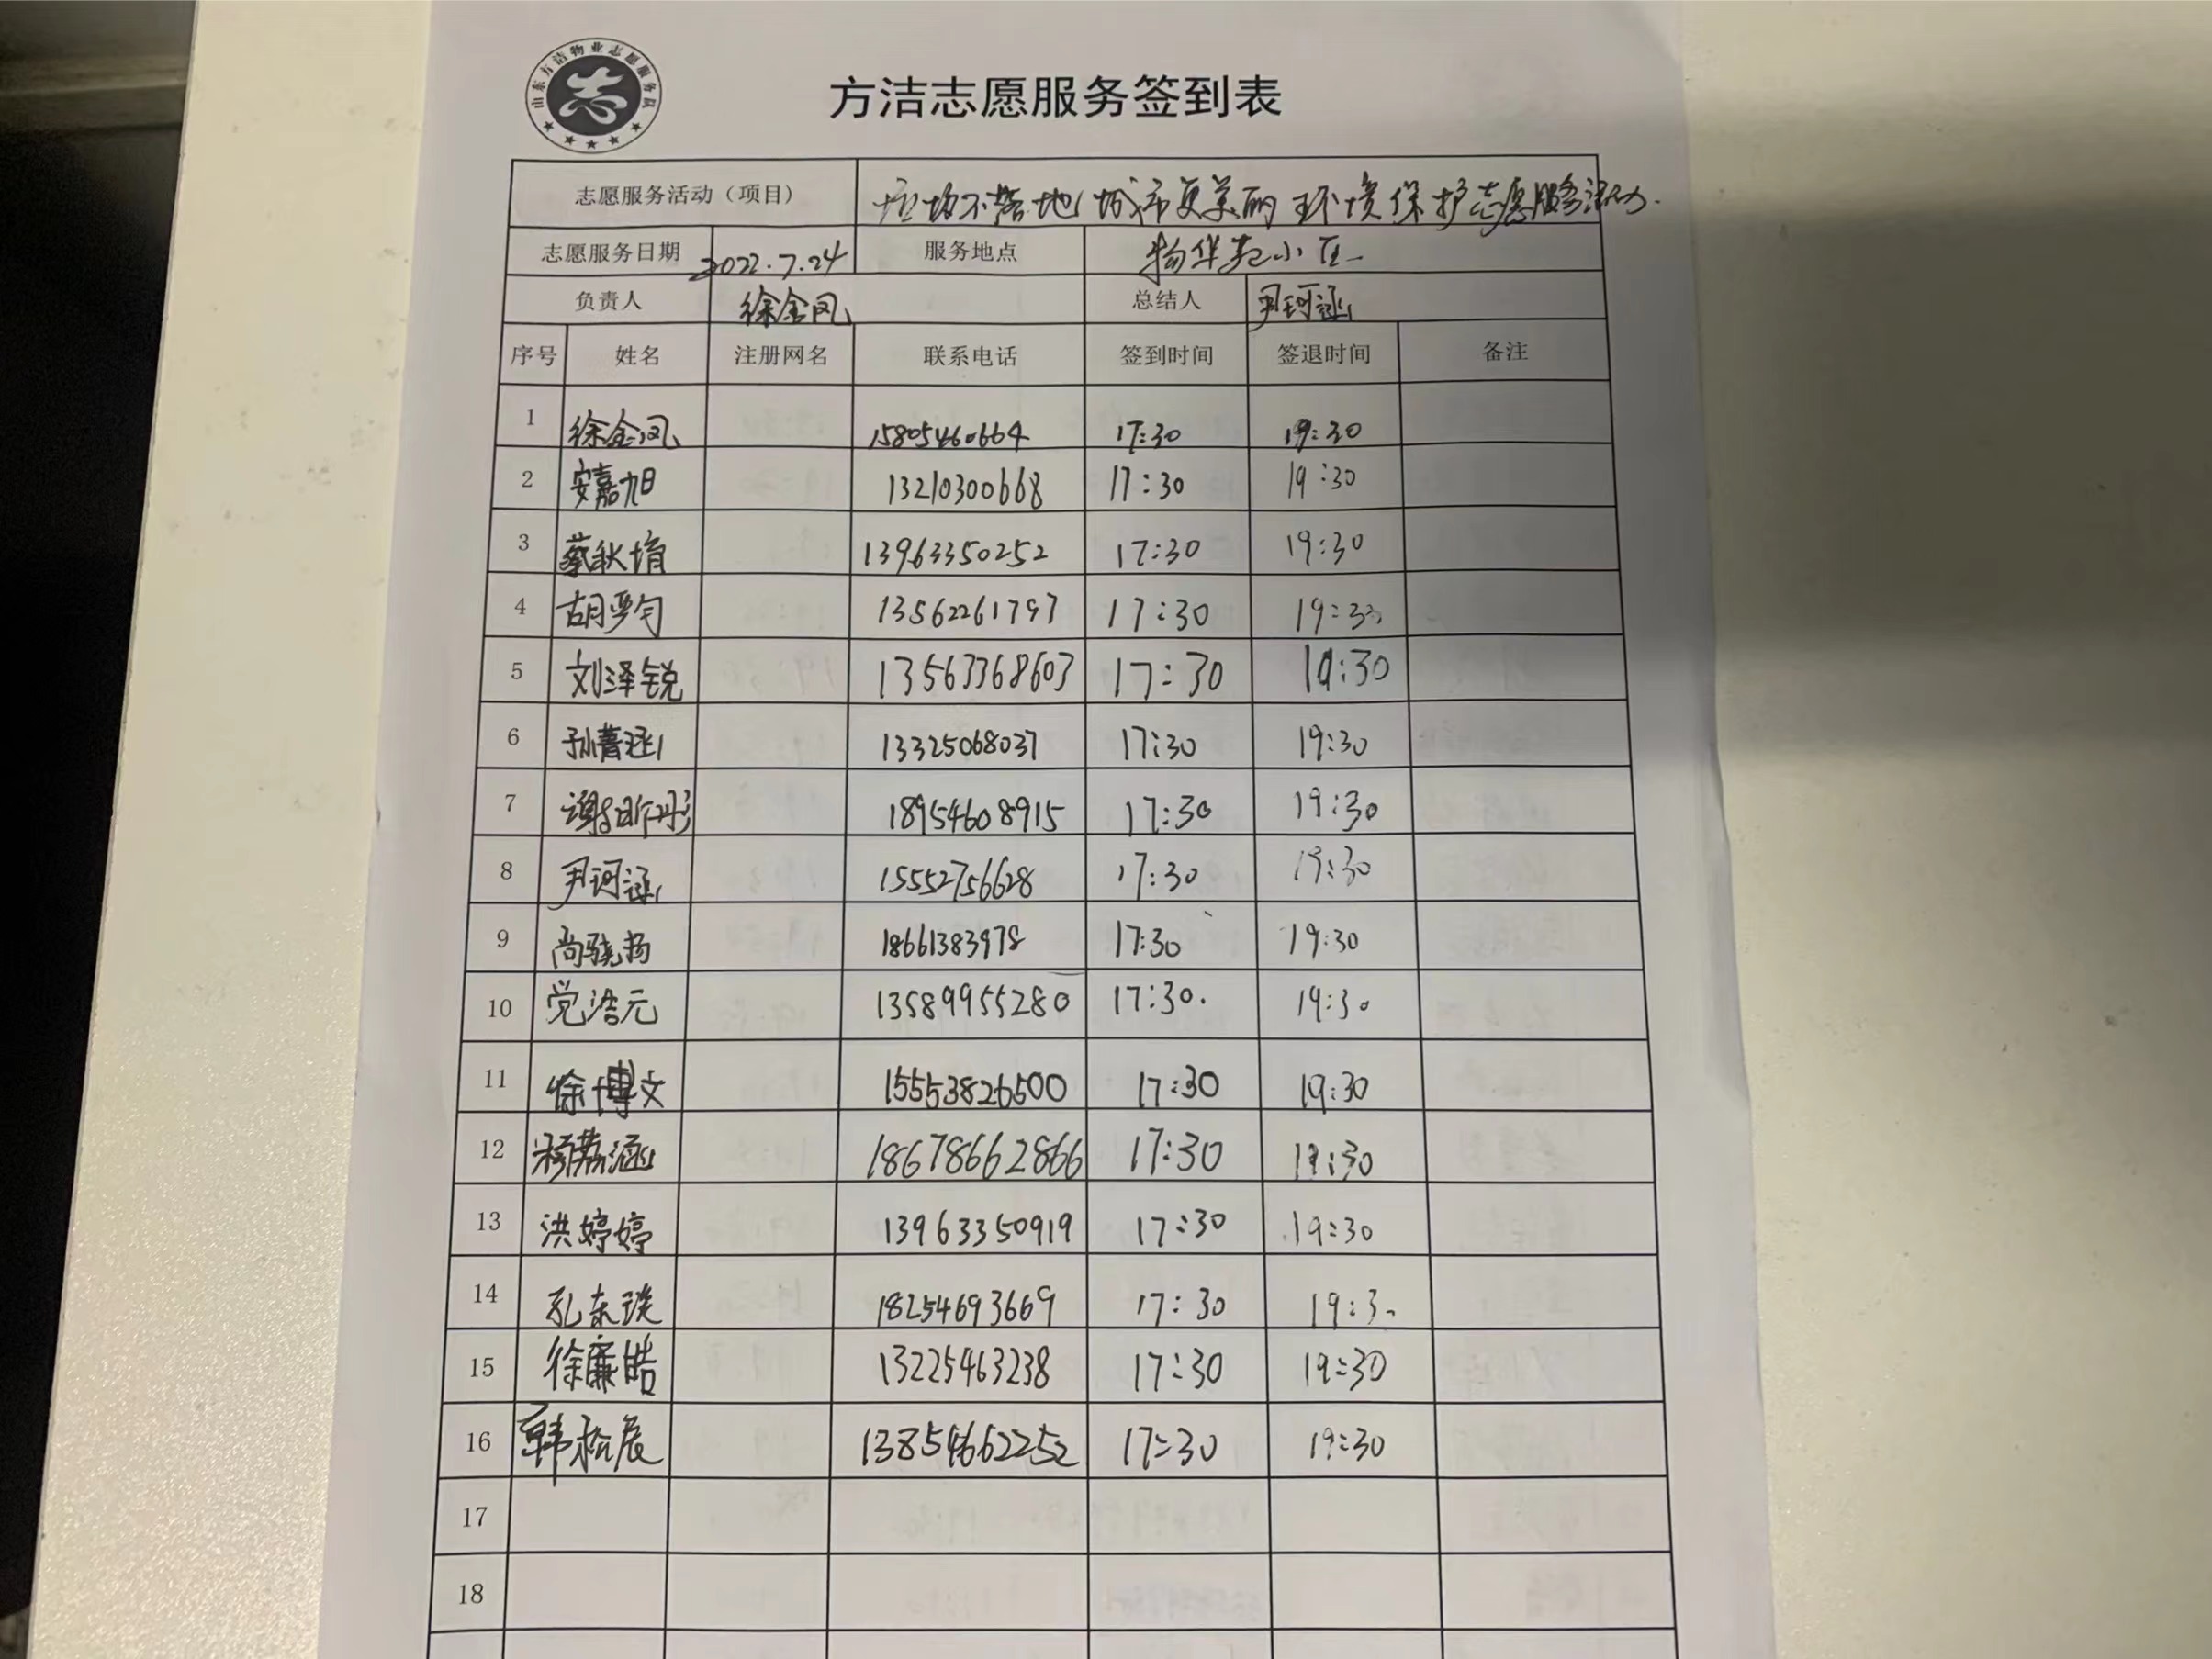 山东方洁物业志愿服务队
志
方洁志愿服务签到表
志愿服务活动（项目） 垃圾不落地 城市更美丽 环境保护志愿服务活动.
志愿服务日期 2022.7.24 服务地点 物华苑小区
负责人 徐金凤 总结人 尹珂涵
序号 姓名 注册网名 联系电话 签到时间 签退时间 备注
1 徐金凤 15805460664 17:30 19:30
2 安嘉旭 13210300668 17:30 19:30
3 蔡秋堉 13963350252 17:30 19:30
4 胡 13562261797 17:30 19:30
5 刘泽锐 13563368603 17:30 19:30
6 孙菁涵 13325068037 17:30 19:30
7 谢昕彤 18954608915 17:30 19:30
8 尹珂涵 15552756628 17:30 19:30
9 尚骁扬 18661383978 17:30 19:30
10 党浩元 13589955280 17:30. 19:30
11 徐博文 15553826500 17:30 19:30
12 涵 18678662866 17:30 19:30
13 洪婷婷 13963350919 17:30 19:30
14 孔东琰 18254693669 17:30 19:30
15 徐廉皓 13225463238 17:30 19:30
16 韩松辰 13854662252 17:30 19:30
17
18